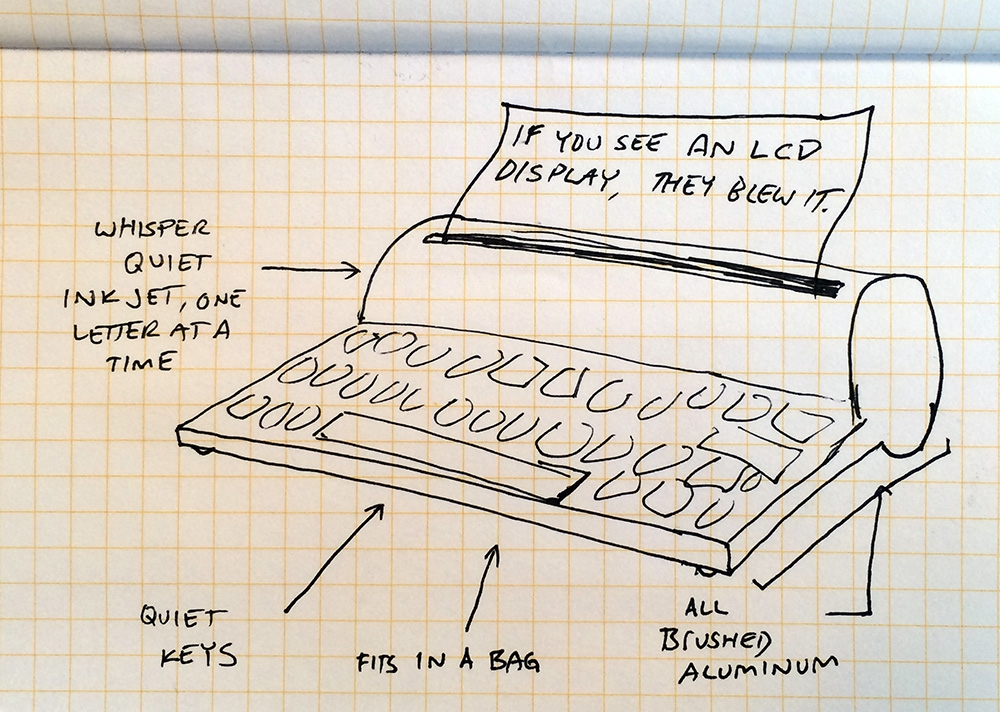 IF YOU SEE AN LCD
DISPLAY, THEY BLEW IT.
WHISPER
QUIET
INK JET, ONE
LETTER AT A
TIME
QUIET
KEYS
FITS IN A BAG
ALL
BRUSHED
ALUMINUM